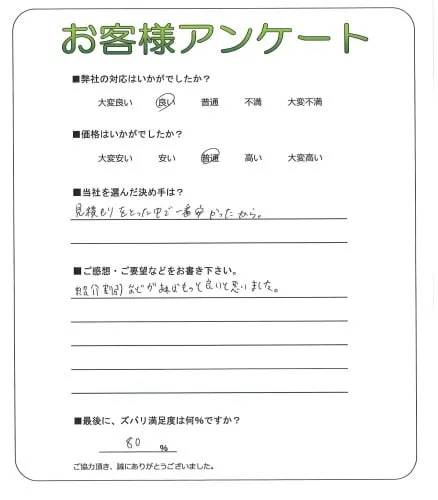 お客様アンケート
■弊社の対応はいかがでしたか？
大変良い 良い 普通 不満 大変不満
■価格はいかがでしたか？
大変安い 安い 普通 高い 大変高い
■当社を選んだ決め手は？
見積もりをとった中で一番安かったから。
■ご感想・ご要望などをお書き下さい。
紹介割引などがあればもっと良いと思いました。
■最後に、ズバリ満足度は何％ですか？
80 ％
ご協力頂き、誠にありがとうございました。